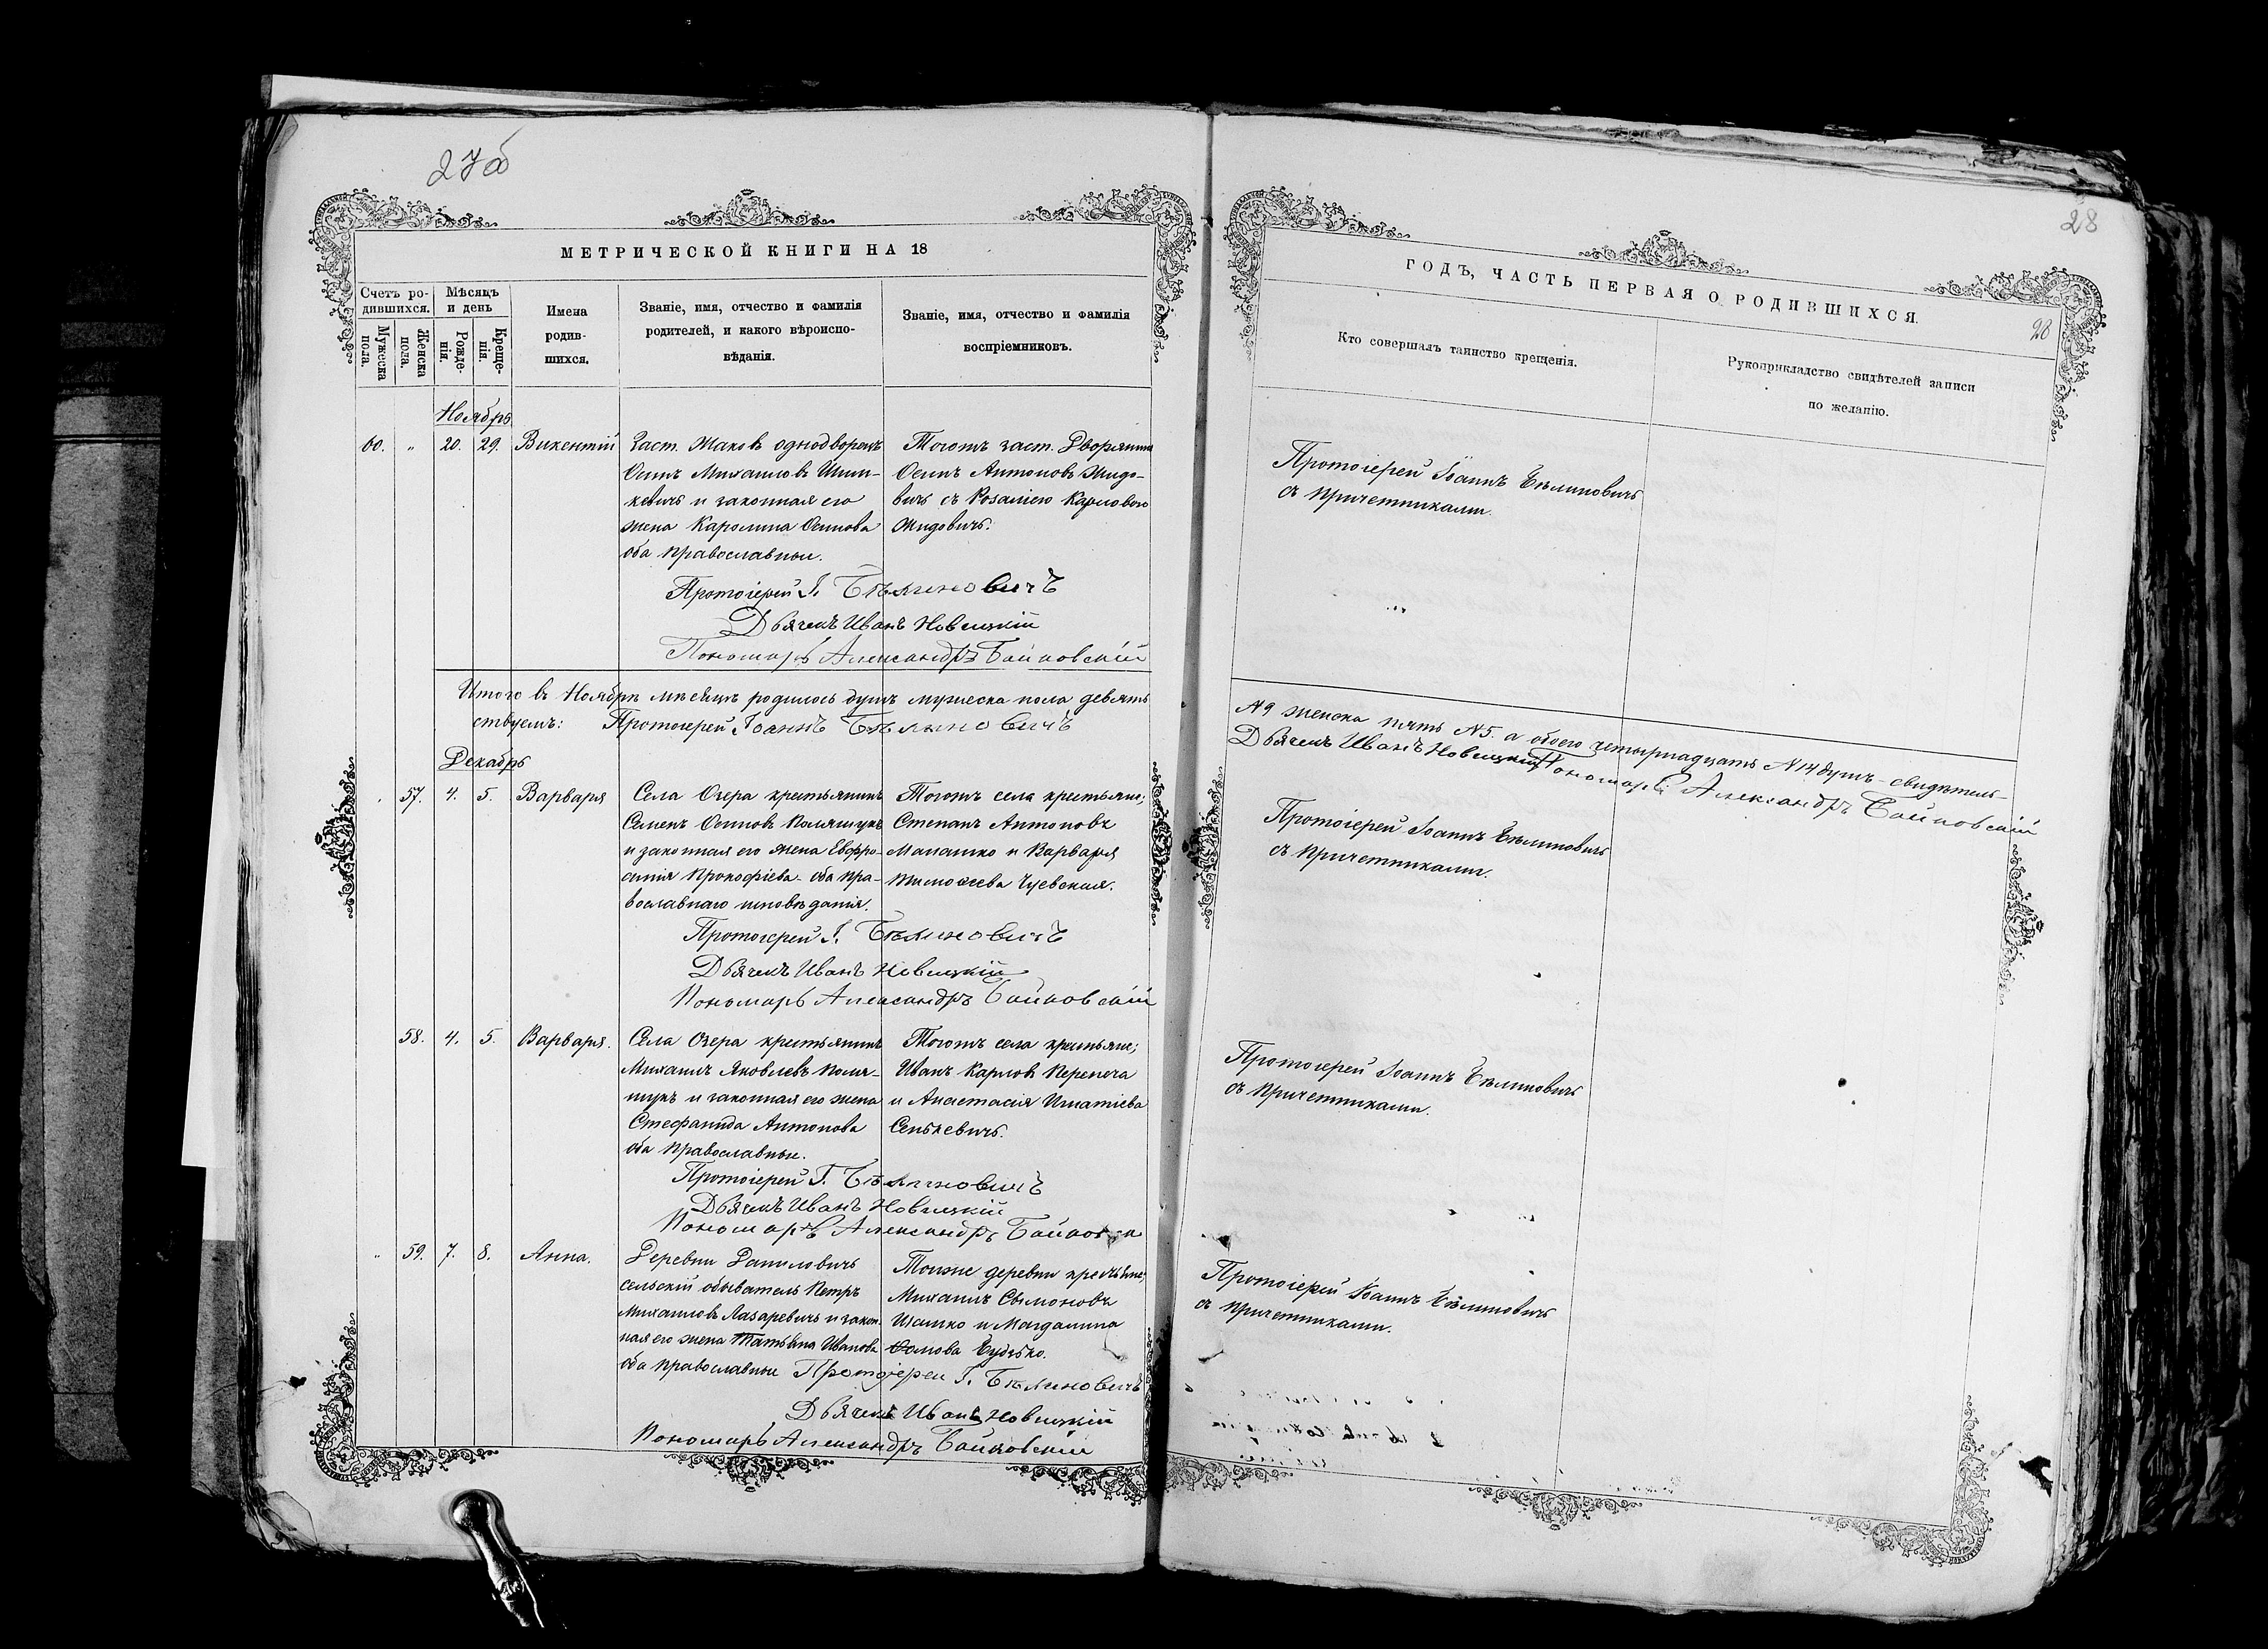 27об
28
МЕТРИЧЕСКОЙ КНИГИ НА 18
ГОДЪ, ЧАСТЬ ПЕРВАЯ О РОДИВШИХСЯ.
28
Счетъ ро-
дившихся.
Мужеска пола.
Женска пола.
Мѣсяцъ
и день
Рожде-
нія.
Креще-
нія.
Имена
родив-
шихся.
Званіе, имя, отчество и фамилія
родителей, и какого вѣроиспо-
вѣданія.
Званіе, имя, отчество и фамилія
воспріемниковъ.
Кто совершалъ таинство крещенія.
Рукоприкладство свидѣтелей записи
по желанію.
Ноябрь
60. " 20. 29. Викентій
Заст. Жаковъ однодворецъ
Осипъ Михаиловъ
и законная его
жена Каролина Осипова
оба православные.
Тогожъ заст. Дворянинъ
Осипъ Антоновъ Жидо-
вичъ съ Розаліею Карловою
Жидовичъ.
Протоіерей Іоаннъ Бѣлиновичъ
съ причетниками.
Протоіерей І. Бѣлиновичъ
Дьячекъ Иванъ Новицкій
Пономарь Александръ Байковскій
Итого въ Ноябрѣ мѣсяцѣ родилось душъ мужеска пола девять
№9 женска пять №5. а обоего четырнадцать №14 душъ – свидѣтель–
ствуемъ: Протоіерей Іоаннъ Бѣлиновичъ
Дьячекъ Иванъ Новицкій Пономарь Александръ Байковскій
Декабрь
57. 4. 5. Варвара
Села Озера крестьянинъ
Семенъ Осиповъ Полящукъ
и законная его жена Евфро-
синія Прокофіева - оба пра-
вославнаго исповѣданія.
Тогожъ села крестьяне;
Степанъ Антоновъ
Манашко и Варвара
Тимофеева Чуевская.
Протоіерей Іоаннъ Бѣлиновичъ
съ причетниками.
Протоіерей І. Бѣлиновичъ
Дьячекъ Иванъ Новицкій
Пономарь Александръ Байковскій
58. 4. 5. Варвара.
Села Озера крестьянинъ
Михаилъ Яковлевъ Поля-
щукъ и законная его жена
Стефанида Антонова
оба православные.
Тогожъ села крестьяне;
Иванъ Карловъ Перепеча
и Анастасія Игнатіева
Сенькевичъ.
Протоіерей Іоаннъ Бѣлиновичъ
съ причетниками.
Протоіерей І. Бѣлиновичъ
Дьячекъ Иванъ Новицкій
Пономарь Александръ
" 59. 7. 8. Анна.
Деревни Даниловичъ
сельскій обыватель Петръ
Михаиловъ Лазаревичъ и закон-
ная его жена Татьяна Иванова
оба православные
Тойже деревни крестьяне;
Михаилъ Сымоновъ
Ишимко и Магдалина
Фомова Будько.
Протоіерей Іоаннъ Бѣлиновичъ
съ причетниками.
Протоіерей І. Бѣлиновичъ
Дьячекъ Иванъ Новицкій
Пономарь Александръ Байковскій